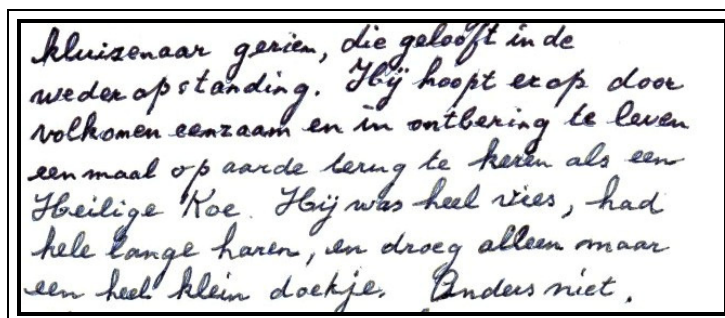 kluizenaar gezien, die gelooft in de
wederopstanding. Hij hoopt erop door
volkomen eenzaam en in ontbering te leven
eenmaal op aarde terug te keren als een
Heilige Koe. Hij was heel vies, had
hele lange haren, en droeg alleen maar
een heel klein doekje. Anders niet.